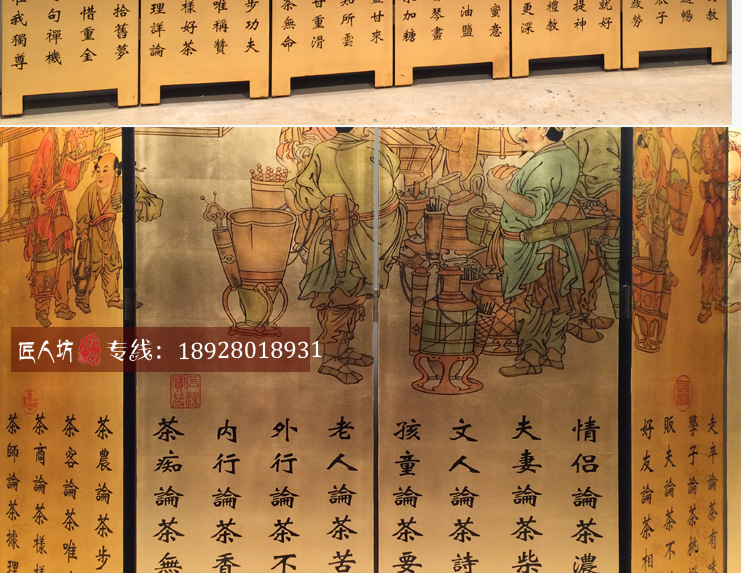 教
暢
瓜子
就好
提神
禮教
更深
蜜意
油鹽
琴畫
加糖
甘來
知所雲
甘重滑
茶無命
步功夫
唯稱贊
樣好茶
理詳論
拾舊夢
惜重金
句禪機
我獨尊
匠人坊 专线：18928018931
走卒論茶有味
學子論茶
販夫論茶不
好友論茶相
情侶論茶濃
夫妻論茶柴
文人論茶詩
孩童論茶要
老人論茶苦
外行論茶不
內行論茶香
茶痴論茶無
茶農論茶步
茶客論茶唯
茶商論茶樣樣
茶師論茶據理